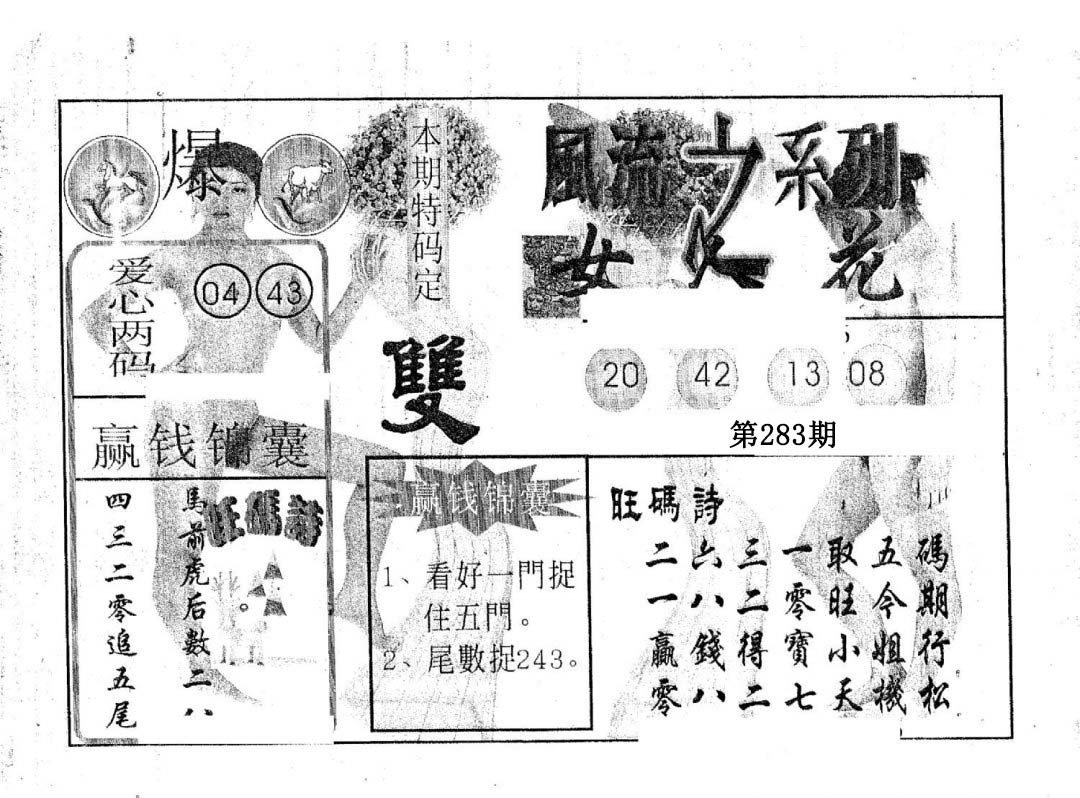 風流之系列
女人花
20 42 13 08
第283期
本期特码定
雙
爆
爱心两码
04 43
赢钱锦囊
旺碼詩
馬前虎后數二八
四三二零追五尾
赢钱锦囊
1、看好一門捉
住五門。
2、尾數捉243。
旺碼詩
碼期行松
五今姐機
取旺小天
一零寶七
三二得二
六八錢八
二一贏零